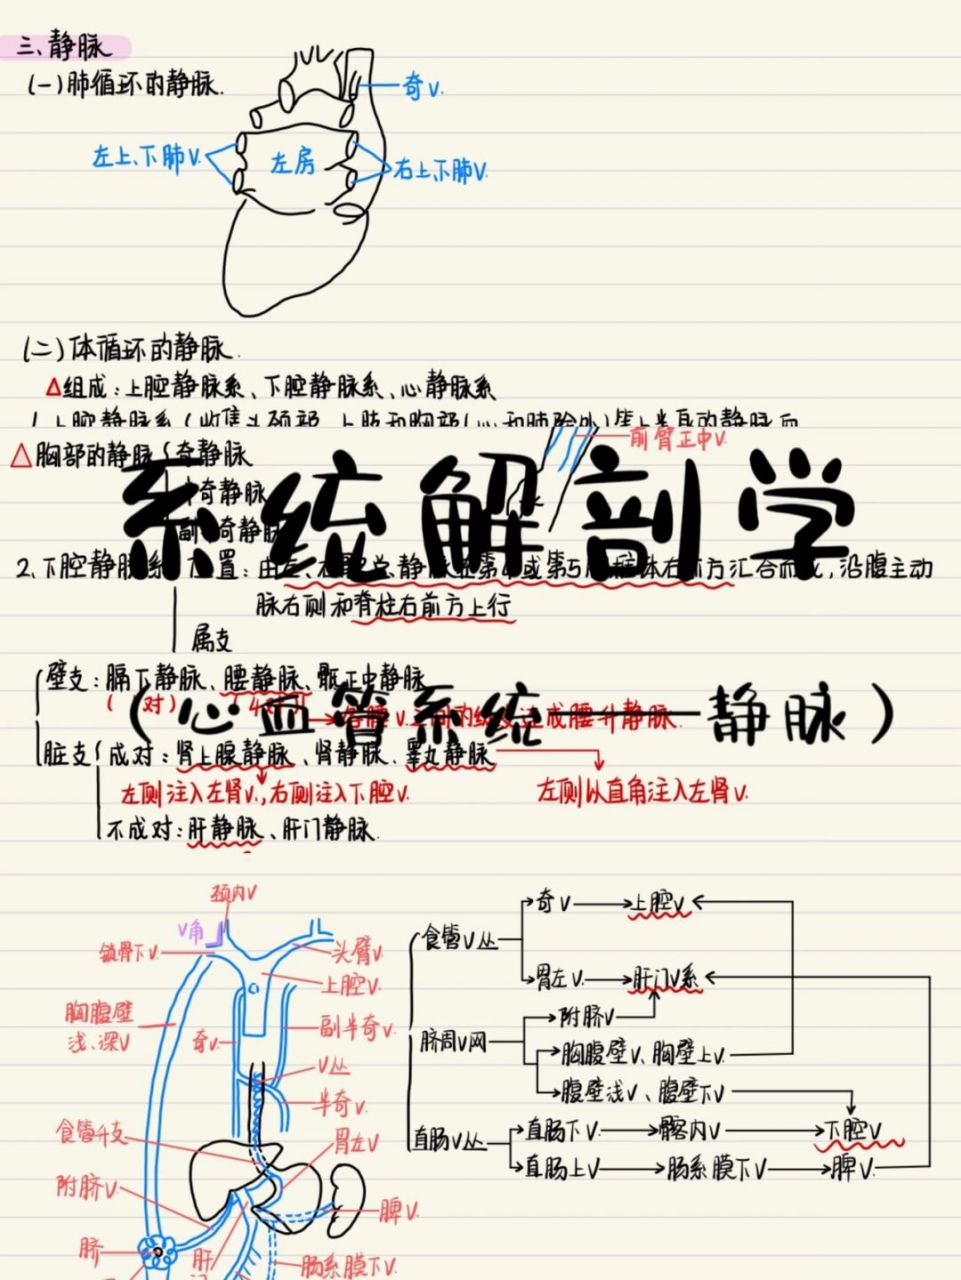 三、静脉
(一)肺循环的静脉.
奇V.
左上、下肺V.
左房
右上、下肺V.
(二)体循环的静脉.
△组成:上腔静脉系、下腔静脉系、心静脉系
前臂正中V.
△胸部的静脉 奇静脉
半奇静脉
副半奇静脉
系统解剖学
2、下腔静脉系
汇合而成,沿腹主动
脉右侧和脊柱右前方上行
属支
壁支:膈下静脉、腰静脉、骶正中静脉
(心血管系统——静脉)
脏支 成对:肾上腺静脉、肾静脉、睾丸静脉
左侧注入左肾V.,右侧注入下腔V.
左侧以直角注入左肾V.
不成对:肝静脉、肝门静脉.
颈内V
V角
锁骨下V.
头臂V.
上腔V.
胸腹壁
浅、深V
奇V.
副半奇V.
V丛
半奇V.
食管升支
胃左V
附脐V
脾V.
脐
肝
门
肠系膜下V.
食管V丛
奇V→上腔V
胃左V→肝门V系
脐周V网
附脐V
胸腹壁V、胸壁上V.
腹壁浅V、腹壁下V
直肠V丛
直肠下V→髂内V→下腔V
直肠上V→肠系膜下V→脾V